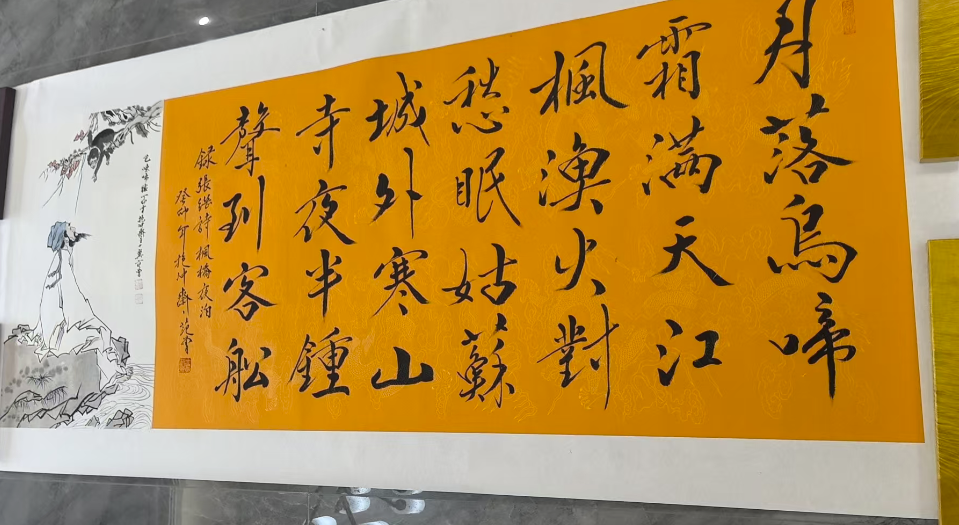 月落烏啼
霜满天江
楓漁火對
愁眠姑蘇
城外寒山
寺夜半鍾
聲到客舩
録張継詩楓橋夜泊
癸卯年